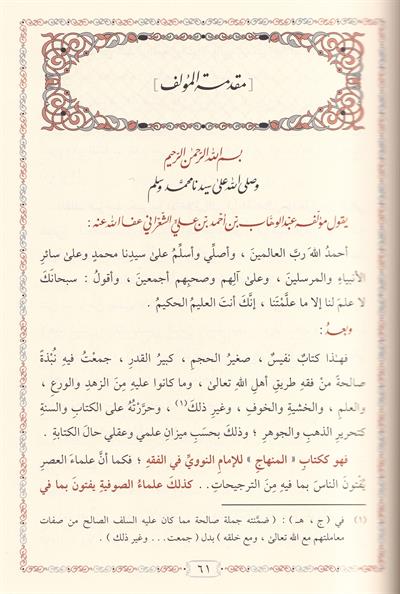 [مقدمة المؤلف]
بسم الله الرحمن الرحيم
وصلى الله على سيدنا محمد وسلم
يقول مؤلفه عبد الوهاب بن أحمد بن علي الشعراني عفا الله عنه :
أحمدُ اللهَ ربَّ العالمينَ ، وأصلِّي وأسلِّمُ علىٰ سيدِنا محمدٍ وعلىٰ سائرِ
الأنبياءِ والمرسلينَ ، وعلىٰ آلِهم وصحبِهم أجمعينَ ، وأقولُ : سبحانَكَ
لا علمَ لنا إلا ما علَّمْتَنا ، إنَّكَ أنتَ العليمُ الحكيمُ .
وبعدُ :
فهٰذا كتابٌ نفيسٌ ، صغيرُ الحجمِ ، كبيرُ القدرِ ، جمعْتُ فيهِ نُبْذَةً
صالحةً مِنْ فقهِ طريقِ أهلِ اللهِ تعالىٰ ، وما كانوا عليهِ مِنَ الزهدِ والورعِ ،
والعلمِ ، والخشيةِ والخوفِ ، وغيرِ ذلكَ(١) ، وحرَّرْتُهُ على الكتابِ والسنةِ
كتحريرِ الذهبِ والجوهرِ ؛ وذلكَ بحسَبِ ميزانِ علمي وعقلي حالَ الكتابةِ .
فهو ككتابِ « المنهاجِ » للإمامِ النوويِّ في الفقهِ ؛ فكما أنَّ علماءَ العصرِ
يُفتونَ الناسَ بما فيهِ مِنَ الترجيحاتِ.. كذلكَ علماءُ الصوفيةِ يفتونَ بما في
(١) في ( ج ، هـ ) : ( ضمَّنته جملة صالحة مما كان عليه السلف الصالح من صفات
معاملتهم مع الله تعالى ، ومع خلقه ) بدل ( جمعت... وغير ذلك ) .
٦١